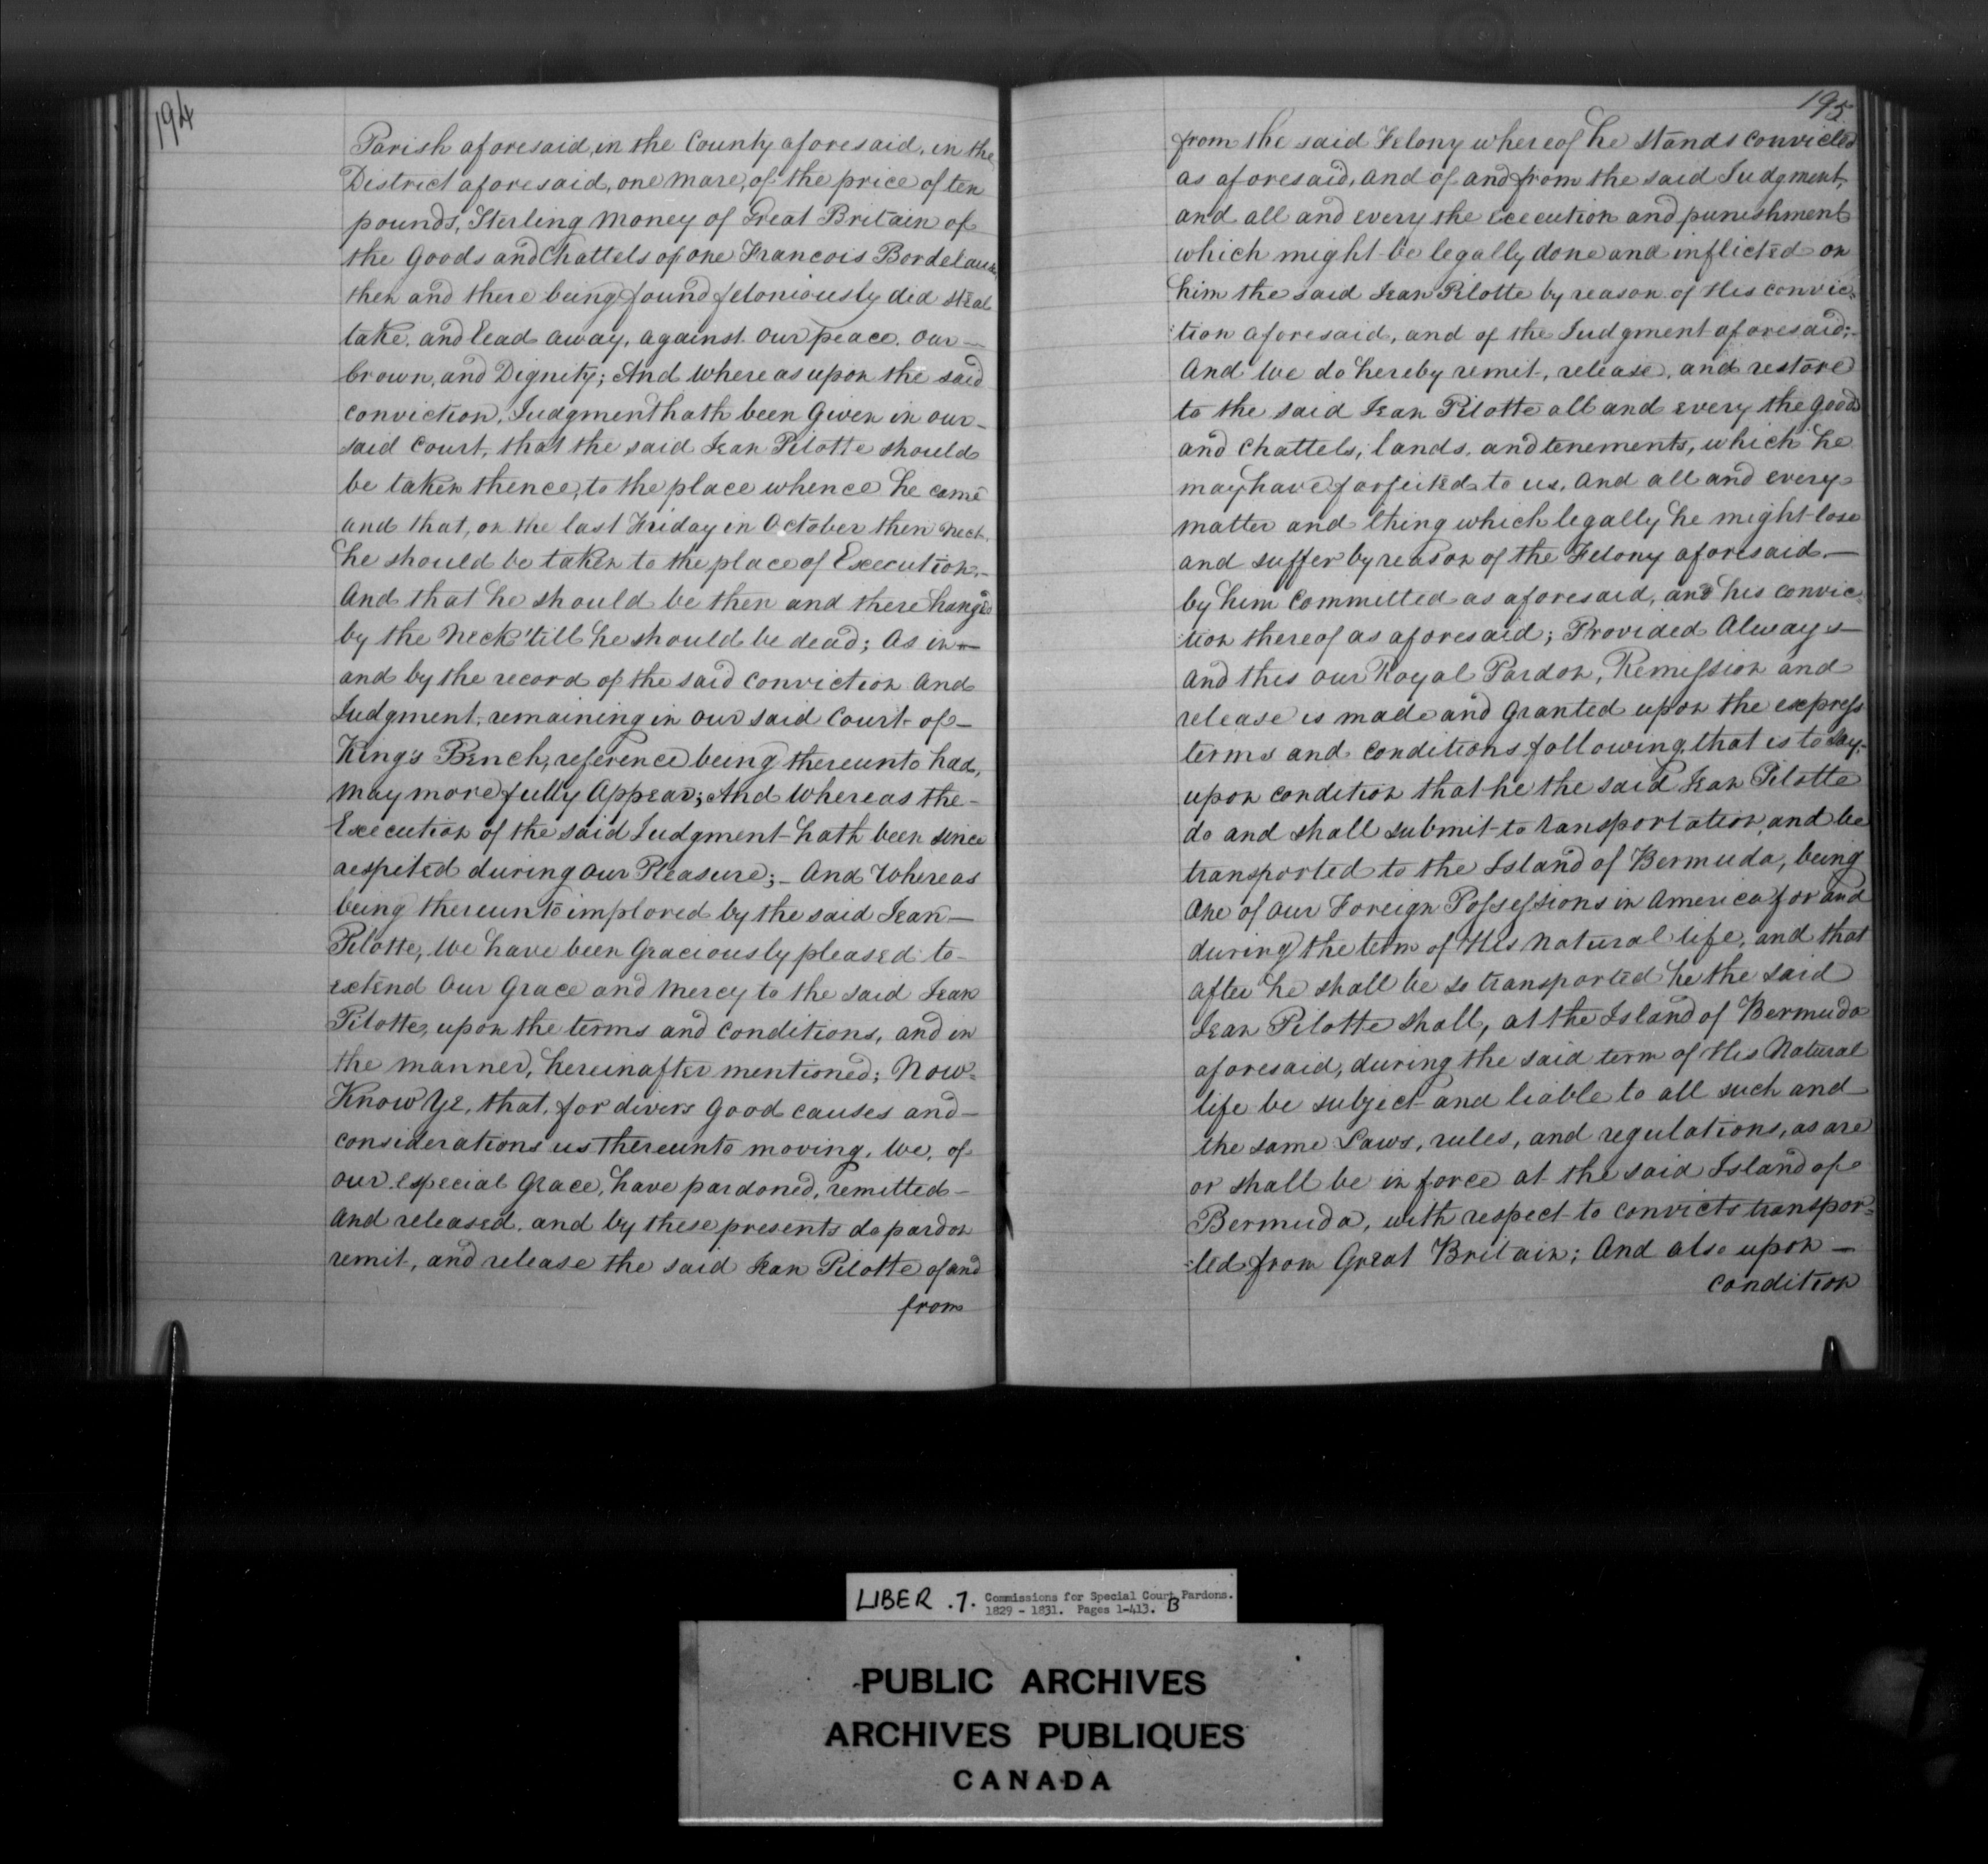 194
Parish aforesaid, in the County aforesaid, in the
District aforesaid, one mare, of the price of ten
pounds, Sterling money of Great Britain of
the Goods and Chattels of one Francois Bordeleau,
then and there being found feloniously did steal
take, and lead away, against our peace, our —
Crown, and Dignity; And whereas upon the said
conviction, Judgment hath been Given in our —
said Court, that the said Jean Pilotte should
be taken thence, to the place whence he came
and that, on the last Friday in October then next,
he should be taken to the place of Execution, —
And that he should be then and there hanged
by the Neck 'till he should be dead; As in —
and by the record of the said Conviction And
Judgment, remaining in our said Court of —
King's Bench, reference being thereunto had,
may more fully Appear; And Whereas the —
Execution of the said Judgment hath been since
respited during Our Pleasure; — And Whereas
being thereunto implored by the said Jean —
Pilotte, We have been Graciously pleased to —
extend Our Grace and Mercy to the said Jean
Pilotte, upon the terms and Conditions, and in
the manner, hereinafter mentioned; Now =
Know Ye, that, for divers Good causes and —
considerations us thereunto moving, We, of
our especial Grace, have pardoned, remitted —
And released, and by these presents do pardon
remit, and release the said Jean Pilotte of and
from
195
from the said Felony whereof he stands convicted
as aforesaid, and of and from the said Judgment,
and all and every the execution and punishment
which might be legally done and inflicted on
him the said Jean Pilotte by reason of His convic=
:tion aforesaid, and of the Judgment aforesaid; —
And We do hereby remit, release, and restore
to the said Jean Pilotte all and every the Goods
and Chattels, lands, and tenements, which he
may have forfeited to us, And all and every
matter and thing which legally he might lose
and suffer by reason of the Felony aforesaid —
by him committed as aforesaid, and his convic=
:tion thereof as aforesaid; Provided Always —
And this our Royal Pardon, Remission and
release is made and Granted upon the express
terms and conditions following, that is to say,
upon condition that he the said Jean Pilotte
do and shall submit to transportation, and be
transported to the Island of Bermuda, being
One of Our Foreign Possessions in America for and
during the term of His Natural life, and that
after he shall be so transported he the said
Jean Pilotte shall, at the Island of Bermuda
aforesaid, during the said term of His Natural
life be subject and liable to all such and
the same Laws, rules, and regulations, as are
or shall be in force at the said Island of
Bermuda, with respect to convicts transpor=
:ted from Great Britain; And also upon —
condition
LIBER .7. Commissions for Special Court Pardons.
1829 - 1831. Pages 1-413. B
PUBLIC ARCHIVES
ARCHIVES PUBLIQUES
CANADA